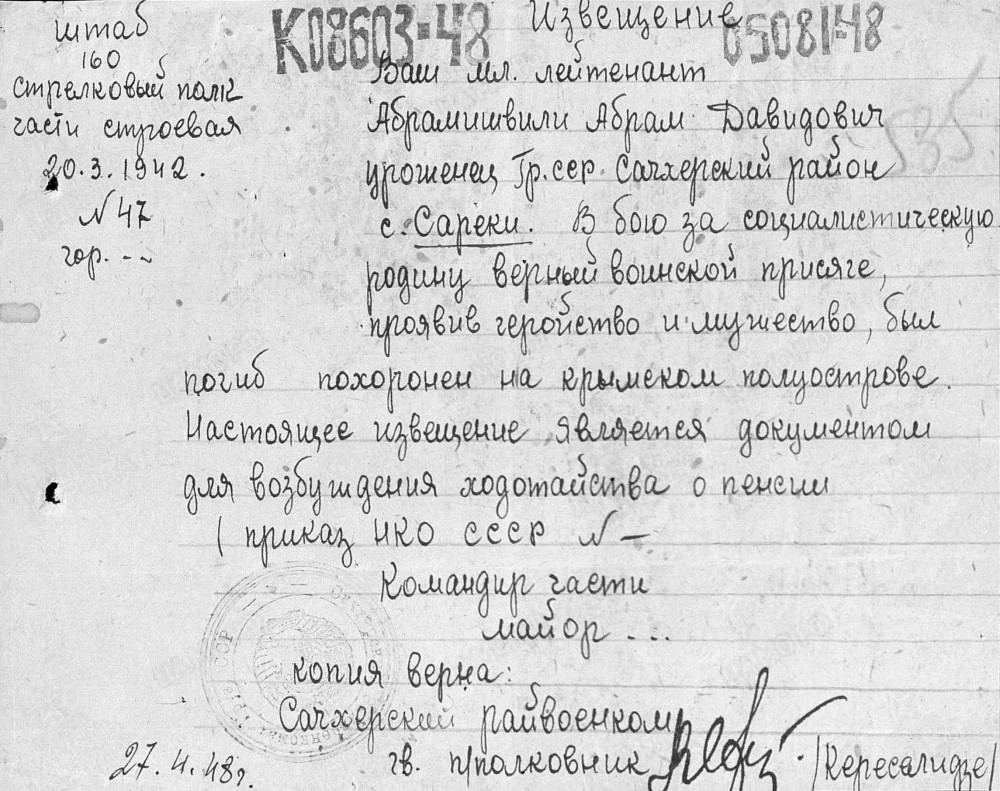 штаб
160
стрелковый полк
части стугоевая
20.3.1942.
№ 47
гор. --
К08603-48
05081-48
535
Извещение
Ваш мл. лейтенант
Абрамишвили Абрам Давидович
урошенец Гр.сср. Сачхерский район
с. Сареки. В бою за социалистическую
родину верный воинской присяге,
проявив геройство и мушество, был
погиб похоронен на крымском полуострове.
Настоящее извещение является документом
для возбушдения ходотайства о пенсии
/ приказ НКО СССР № —
Командир части
майор ...
копия верна:
Сачхерский райвоенком
27.4.48г. гв. п/полковник /Кересалидзе/